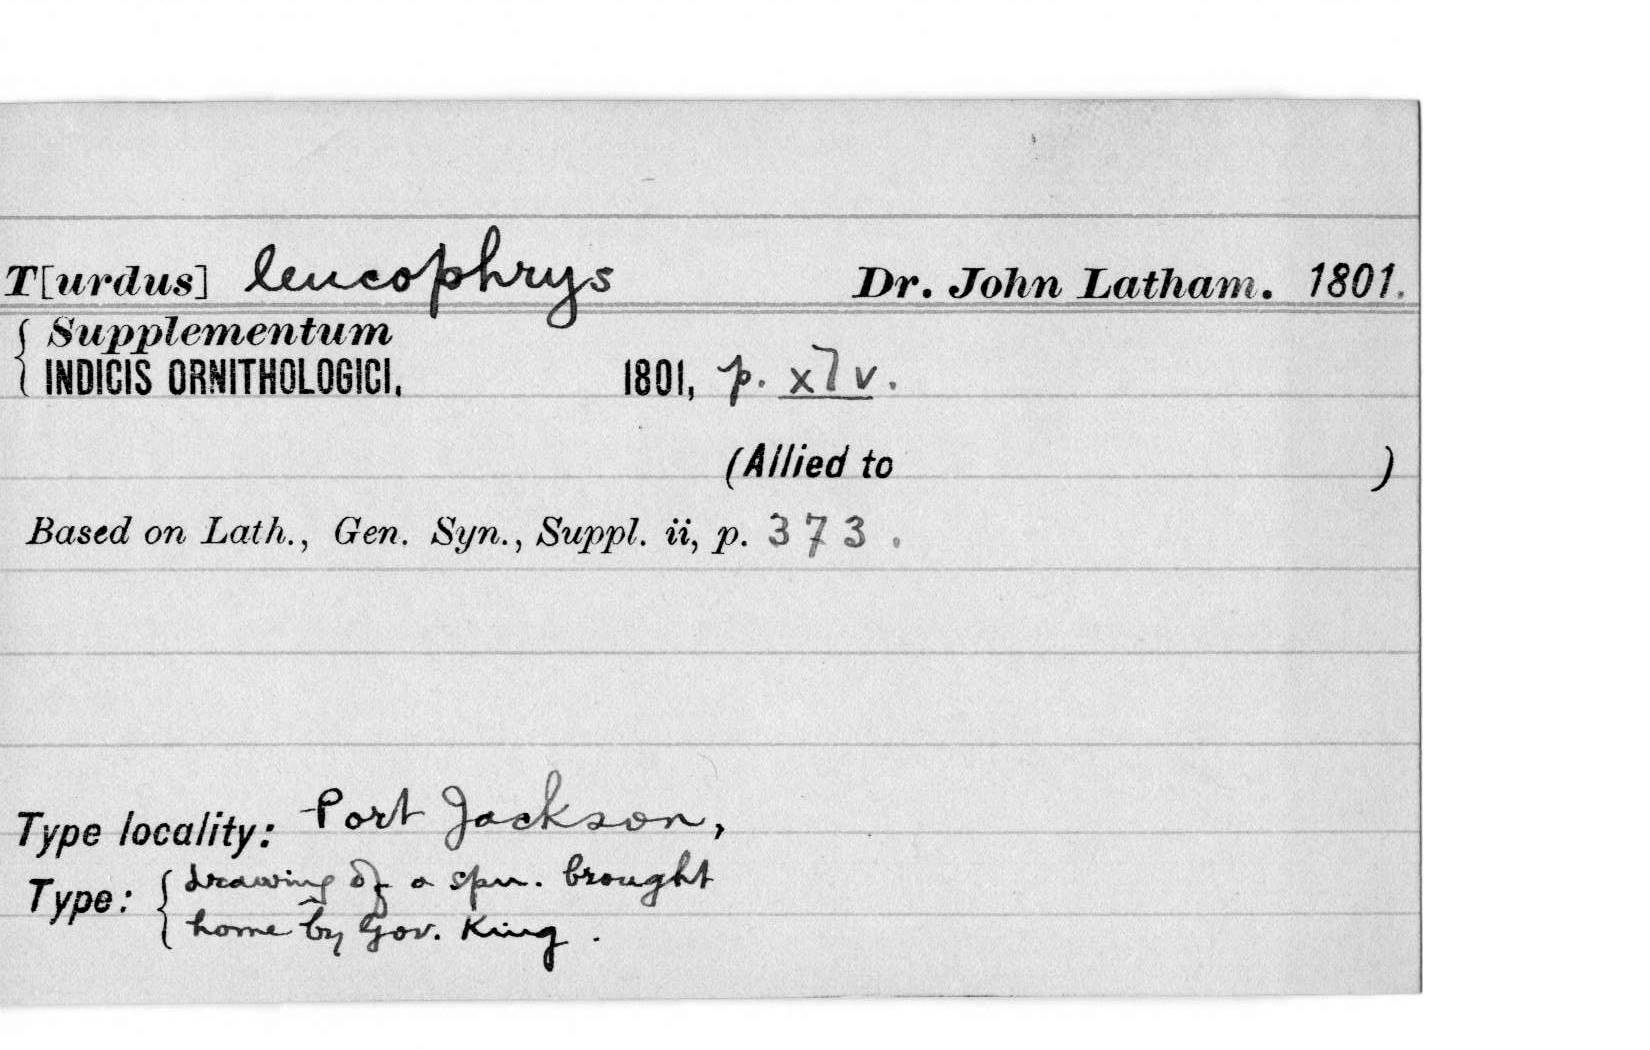 T[urdus] leucophrys Dr. John Latham. 1801.
{ Supplementum
INDICIS ORNITHOLOGICI, 1801, p. xlv.
(Allied to )
Based on Lath., Gen. Syn., Suppl. ii, p. 373.
Type locality: Port Jackson,
Type: { drawing of a spm. brought
home by Gov. King.